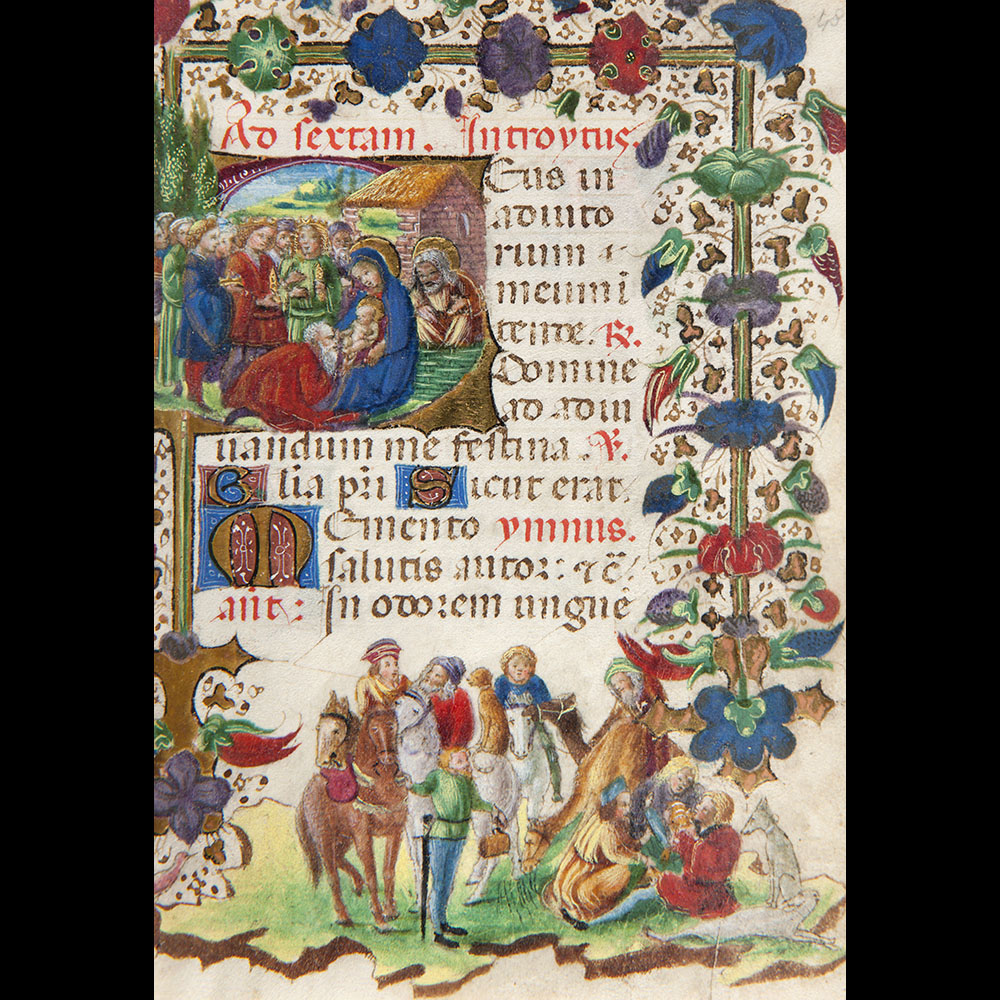 48
Ad sextam. Introytus.
Deus in
adiuto
rium .
meum ī
tente. ℟.
Domine
ad adiu
uandum me festina .℣.
Glīa pri Sicut erat.
Memento ymnus.
salutis autor: ⁊c̄
ant: In odorem unguē